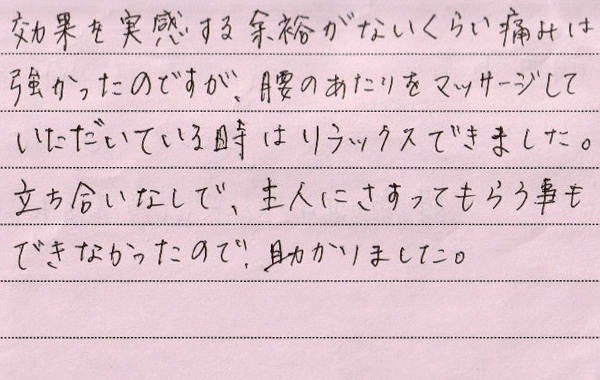 効果を実感する余裕がないくらい痛みは
強かったのですが、腰のあたりをマッサージして
いただいている時はリラックスできました。
立ち合いなしで、主人にさすってもらう事も
できなかったので、助かりました。